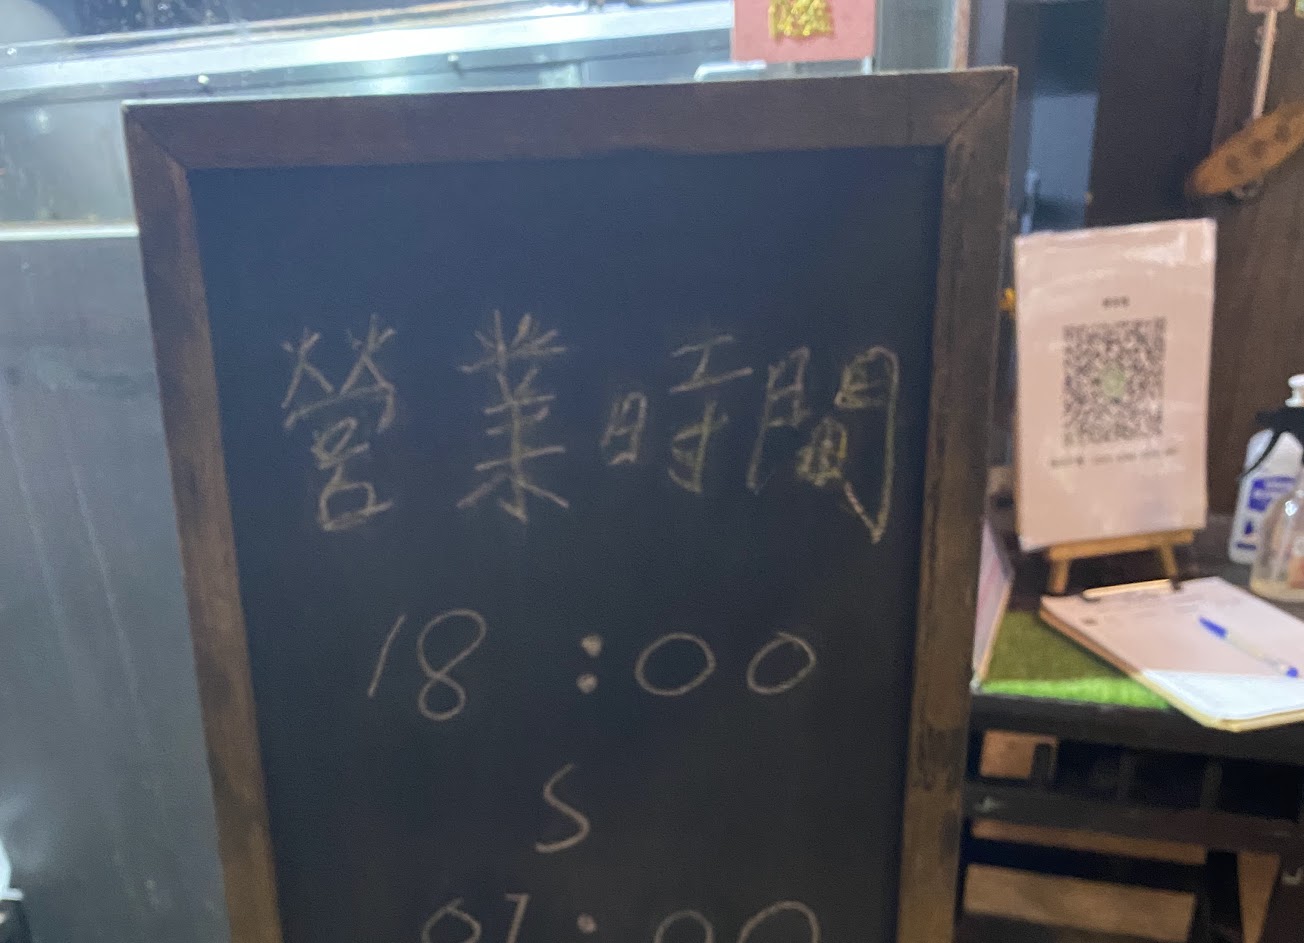 營業時間
18:00
S
01:00